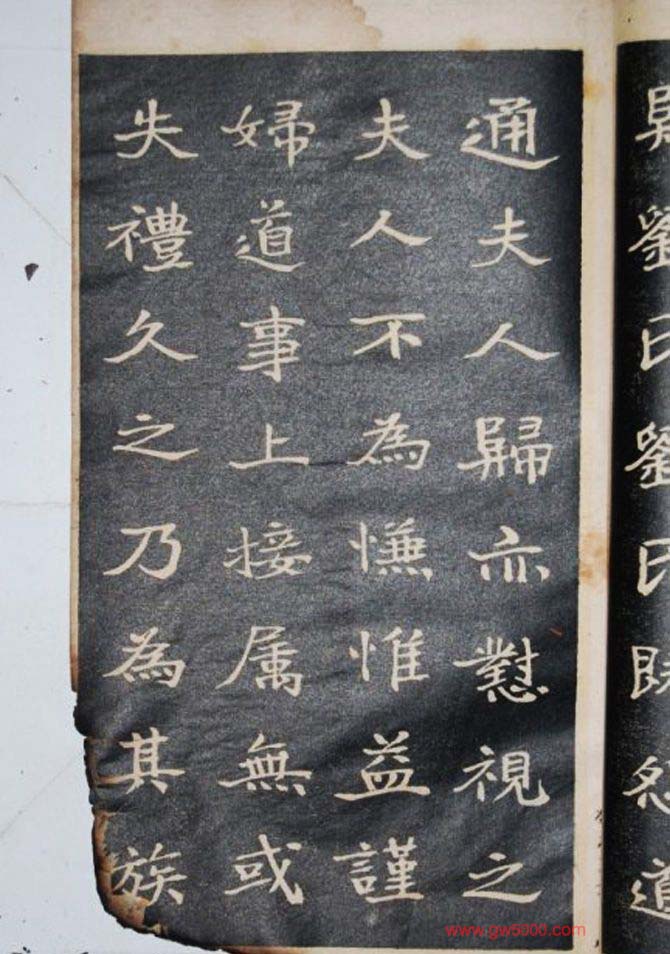 劉氏劉氏
通夫人歸亦懟視之
夫人不為慊惟益謹
婦道事上接属無或
失禮久之乃為其族
www.gw5000.com